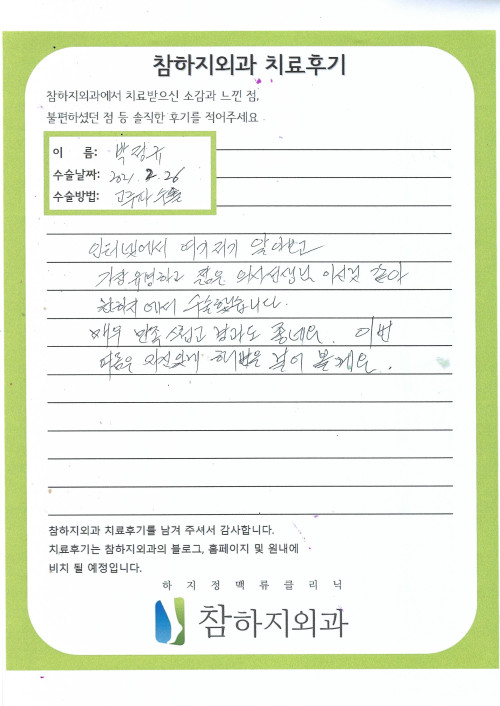 참하지외과 치료후기
참하지외과에서 치료받으신 소감과 느낀 점,
불편하셨던 점 등 솔직한 후기를 적어주세요
이 름: 박정규
수술날짜: 2021. 2. 26
수술방법: 고주파 수술
인터넷에서 여기저기 알아보고
가장 유명하고 젊은 의사선생님 이신것 같아
참하지에서 수술했습니다.
매우 만족스럽고 결과도 좋네요. 이번
여름은 자신있게 걸어 볼게요.
참하지외과 치료후기를 남겨 주셔서 감사합니다.
치료후기는 참하지외과의 블로그, 홈페이지 및 원내에
비치 될 예정입니다.
하지정맥류클리닉
참하지외과